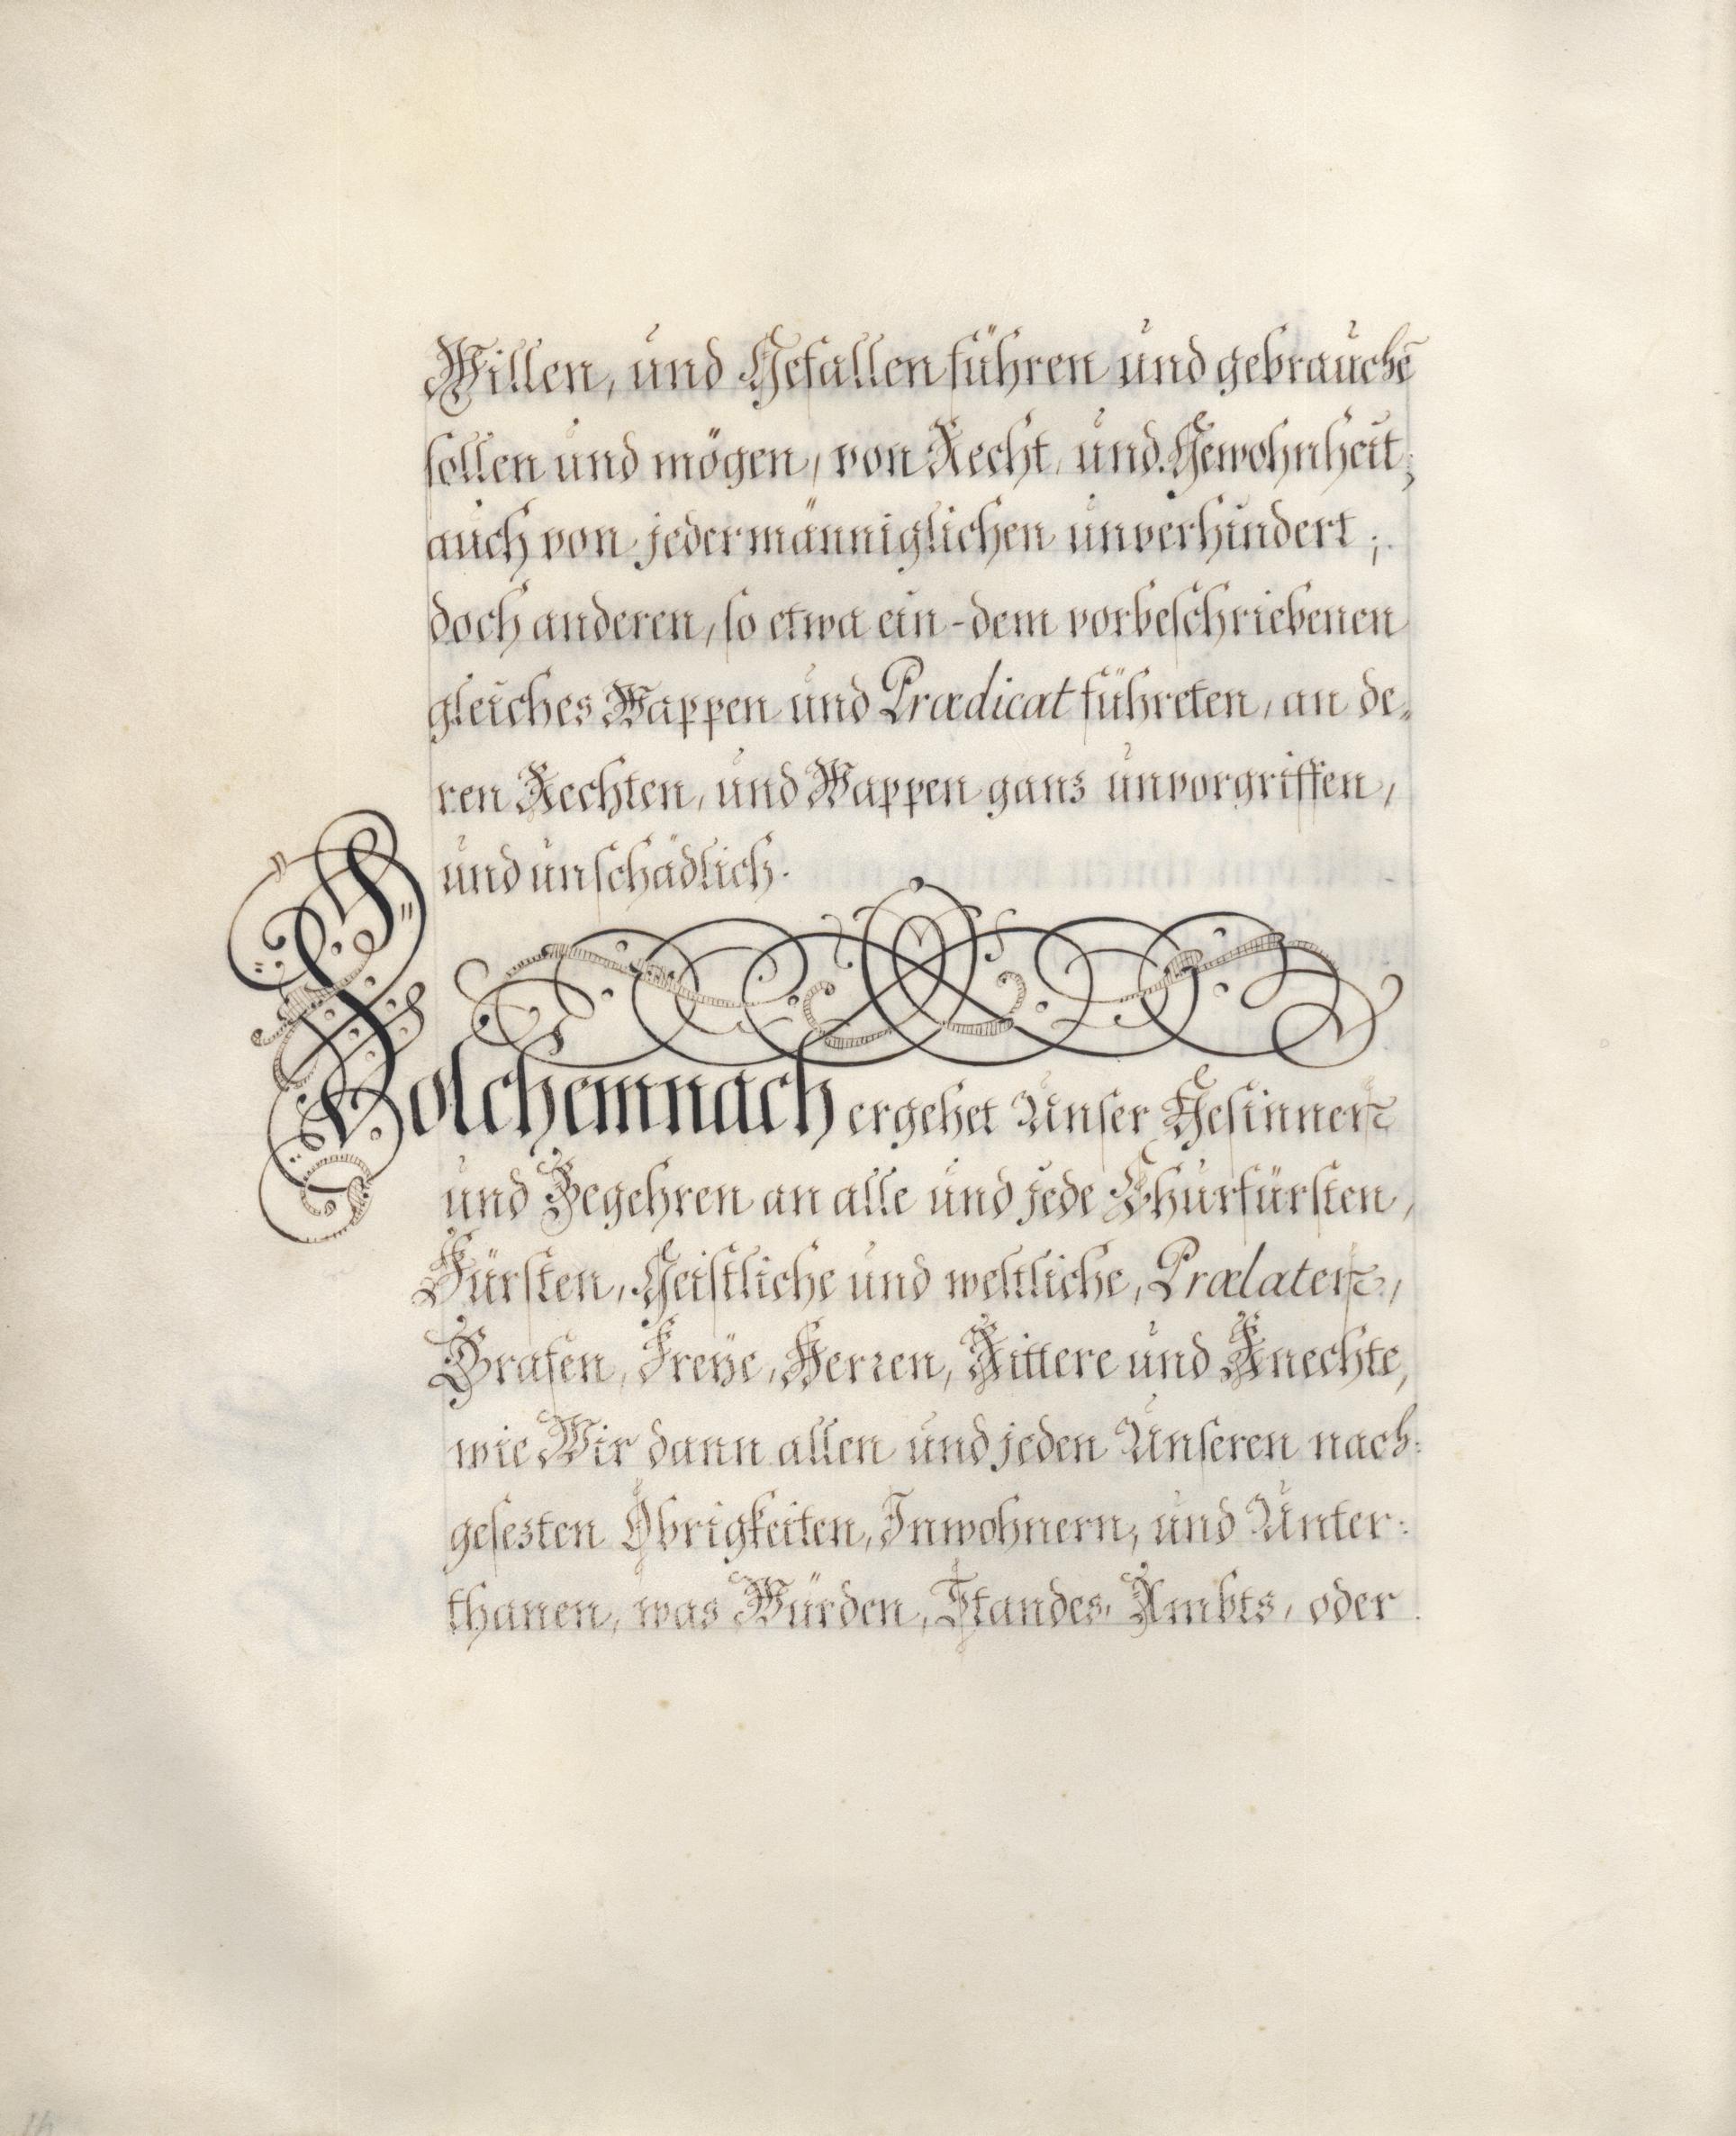 Willen, und Gefallen führen und gebrauchē
sollen und mögen, von Recht, und Gewohnheit;
auch von jedermänniglichen unverhindert;
doch anderen, so etwa ein-dem vorbeschriebenen
gleiches Wappen und Prædicat führeten, an de„
ren Rechten, und Wappen ganz unvorgriffen,
und unschädlich.
Solchemnach ergehet Unser Gesinnen
und Begehren an alle und jede Churfürsten,
Fürsten, Geistliche und weltliche, Prælaten,
Grafen, Freÿe, Herren, Rittere und Knechte,
wie Wir dann allen und jeden Unseren nach:
gesezten Obrigkeiten, Inwohnern, und Unter:
thanen, was Würden, Standes, Ambts, oder